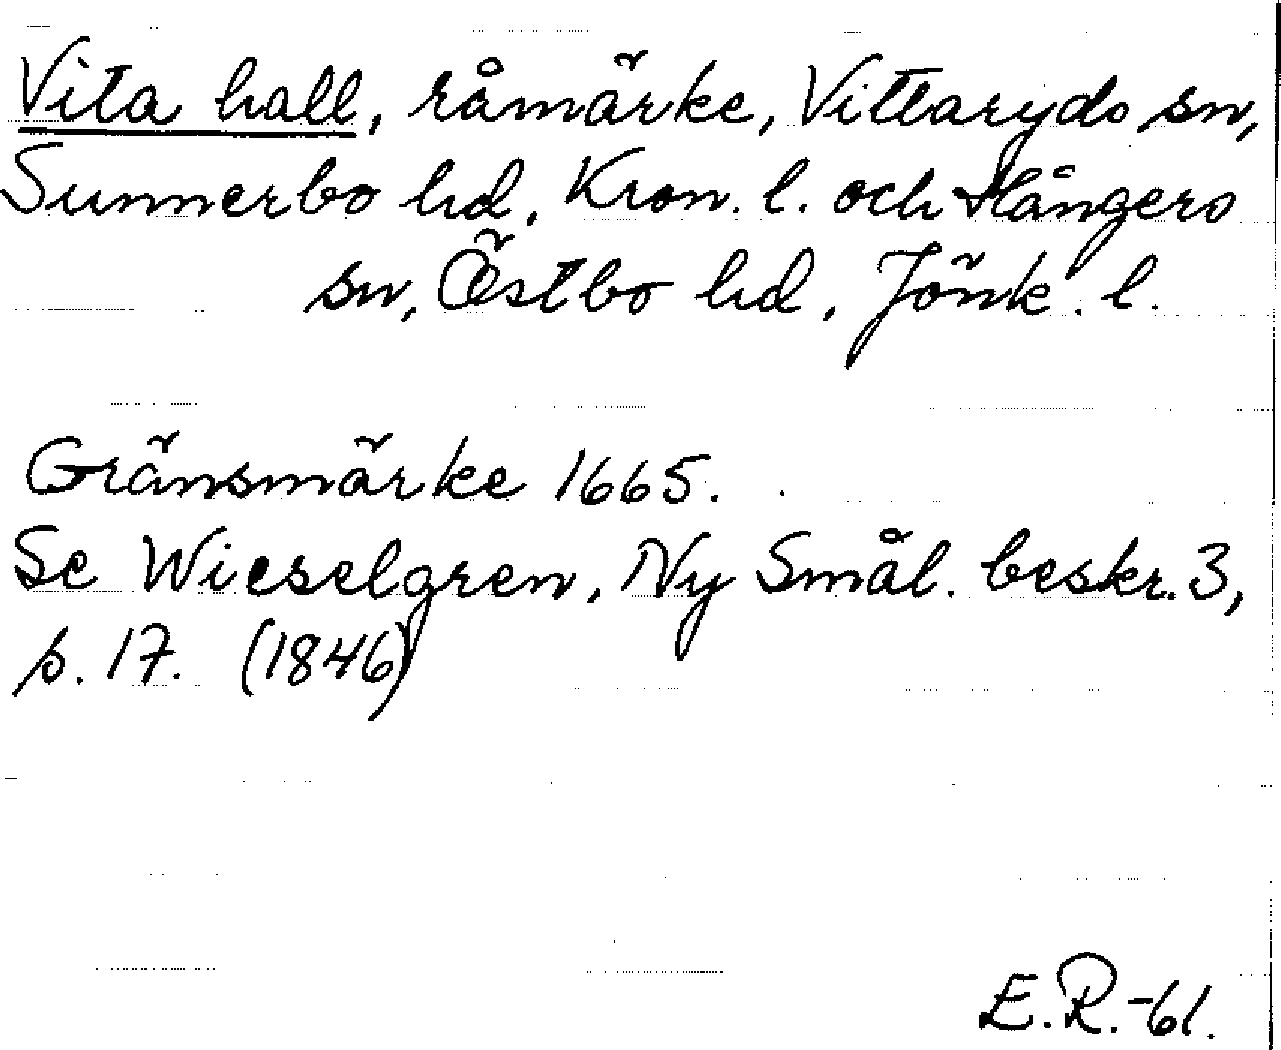 Vita hall, råmärke, Vittaryds sn,
Sunnerbo hd, Kron. l. och Hångers
sn, Östbo hd, Jönk. l.
Gränsmärke 1665.
Se Wieselgren, Ny Smål. beskr. 3,
s. 17. (1846)
E.R.-61.